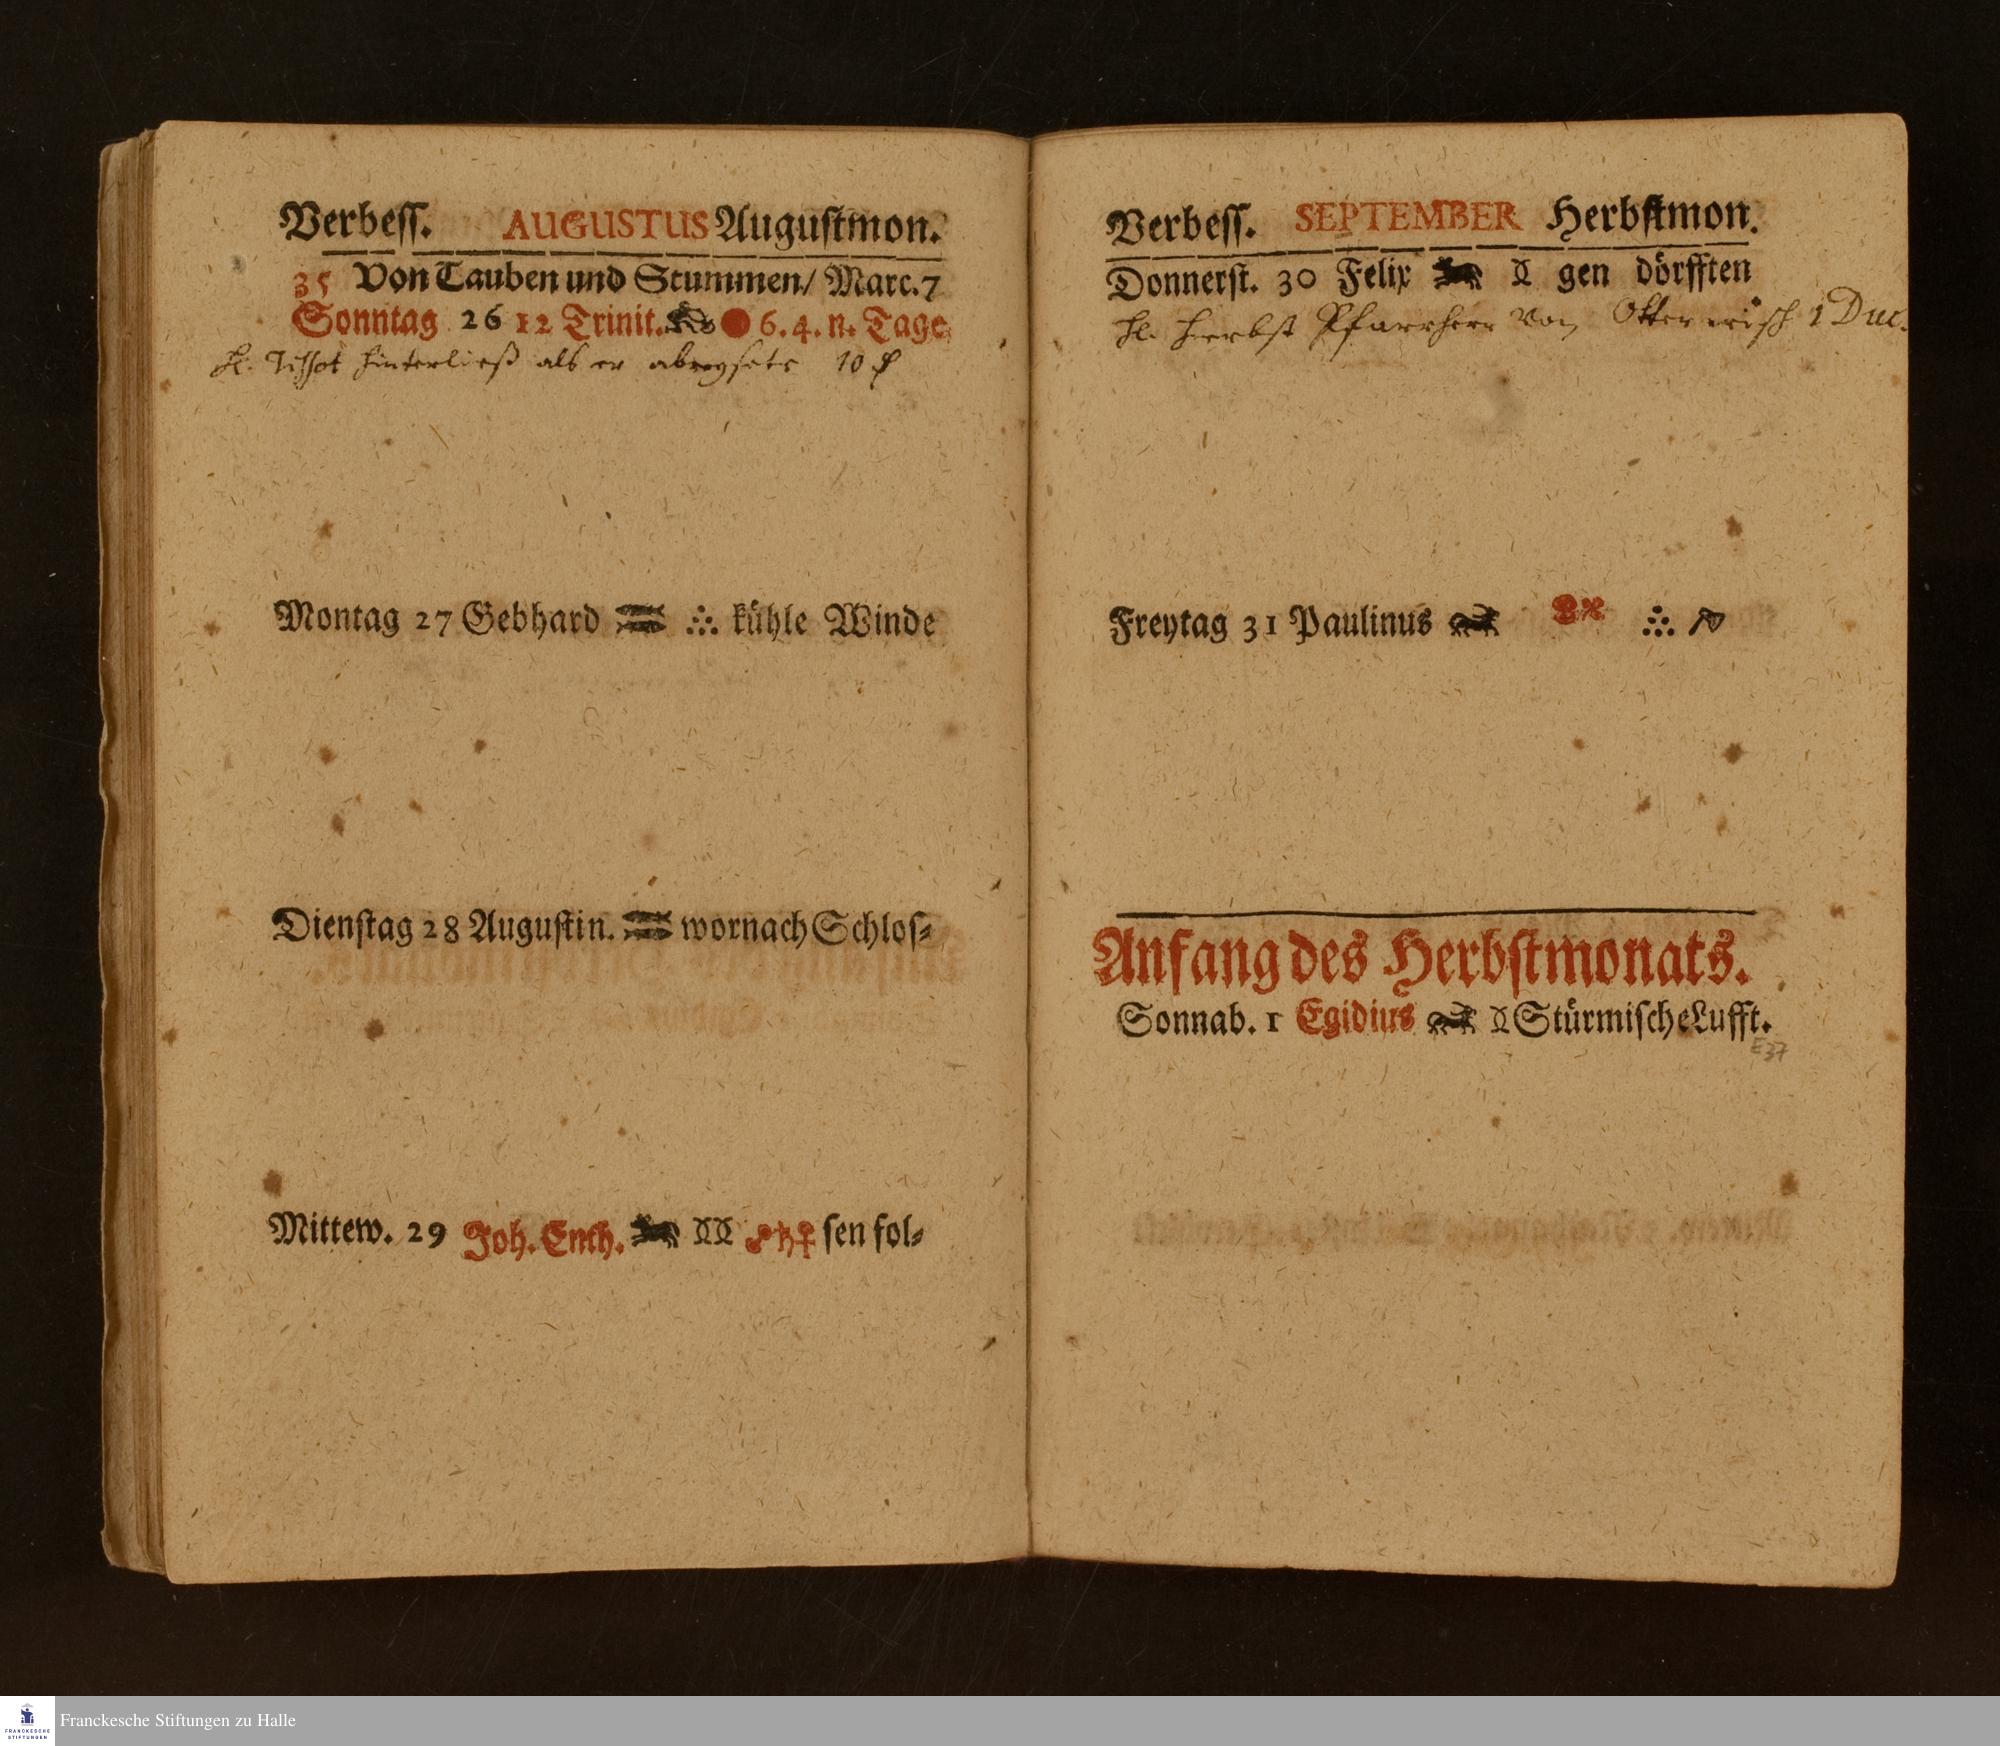 Verbess. AUGUSTUS Augustmon.
35 Von Tauben und Stummen/ Marc. 7
Sonntag 26 12 Trinit. 6. 4. n. Tage
hinterließ als er 10
Montag 27 Gebhard kühle Winde
Dienstag 28 Augustin. wornach Schlos-
Mittew. 29 Joh. Enth. ♂♄♀ sen fol-
Verbess. SEPTEMBER Herbstmon.
Donnerst. 30 Felix gen dörfften
H. Herbst Pfarrherr von Otterwisch 1 Duc.
Freytag 31 Paulinus
Anfang des Herbstmonats.
Sonnab. 1 Egidius Stürmische Lufft.
E37
FRANCKESCHE
STIFTUNGEN
Franckesche Stiftungen zu Halle